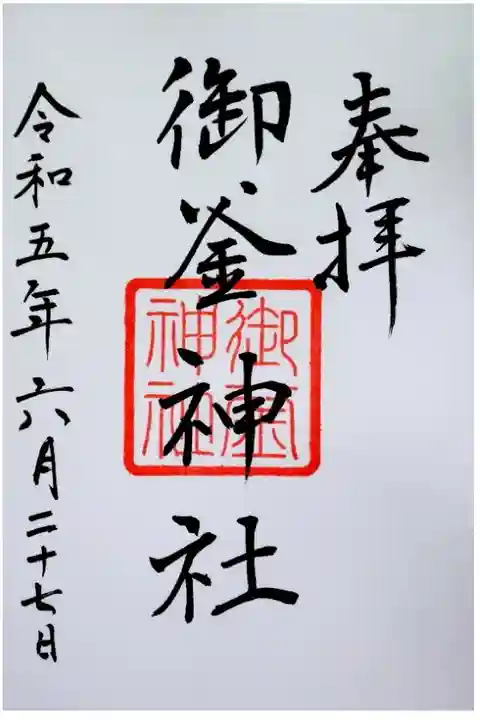 奉拝
御釜神社
令和五年六月二十七日